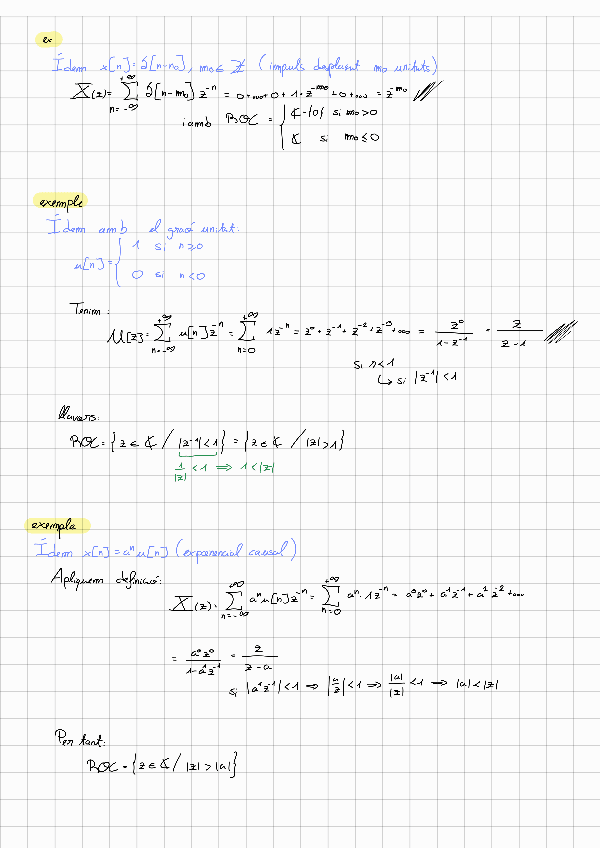 ex
Ídem x[n]=δ[n-n₀], m₀∈ℤ (impuls desplaçant m₀ unitats)
X(z)= ∑_{n=-∞}^{+∞} δ[n-m₀] z⁻ⁿ = 0+...+0+1·z^{-m₀}+0+... = z^{-m₀}
i amb ROC = { ℂ-{0} si m₀>0
ℂ si m₀≤0
exemple
Ídem amb el graó unitat:
u[n]= { 1 si n≥0
0 si n<0
Tenim:
U[z]= ∑_{n=-∞}^{+∞} u[n]z⁻ⁿ = ∑_{n=0}^{+∞} 1z⁻ⁿ = z⁰+z⁻¹+z⁻²+z⁻³+... = z⁰/(1-z⁻¹) = z/(z-1)
si r<1
↳ si |z⁻¹|<1
llavors:
ROC={z∈ℂ / |z⁻¹|<1} = {z∈ℂ / |z|>1}
1/|z| <1 ⇒ 1<|z|
exemple
Ídem x[n]=aⁿu[n] (exponencial causal)
Apliquem definició:
X(z)= ∑_{n=-∞}^{+∞} aⁿu[n]z⁻ⁿ = ∑_{n=0}^{+∞} aⁿ·1z⁻ⁿ = a⁰z⁰+a¹z⁻¹+a²z⁻²+...
= a⁰z⁰/(1-a¹z⁻¹) = z/(z-a)
si |a¹z⁻¹|<1 ⇒ |a/z|<1 ⇒ |a|/|z|<1 ⇒ |a|<|z|
Per tant:
ROC={z∈ℂ/ |z|>|a|}